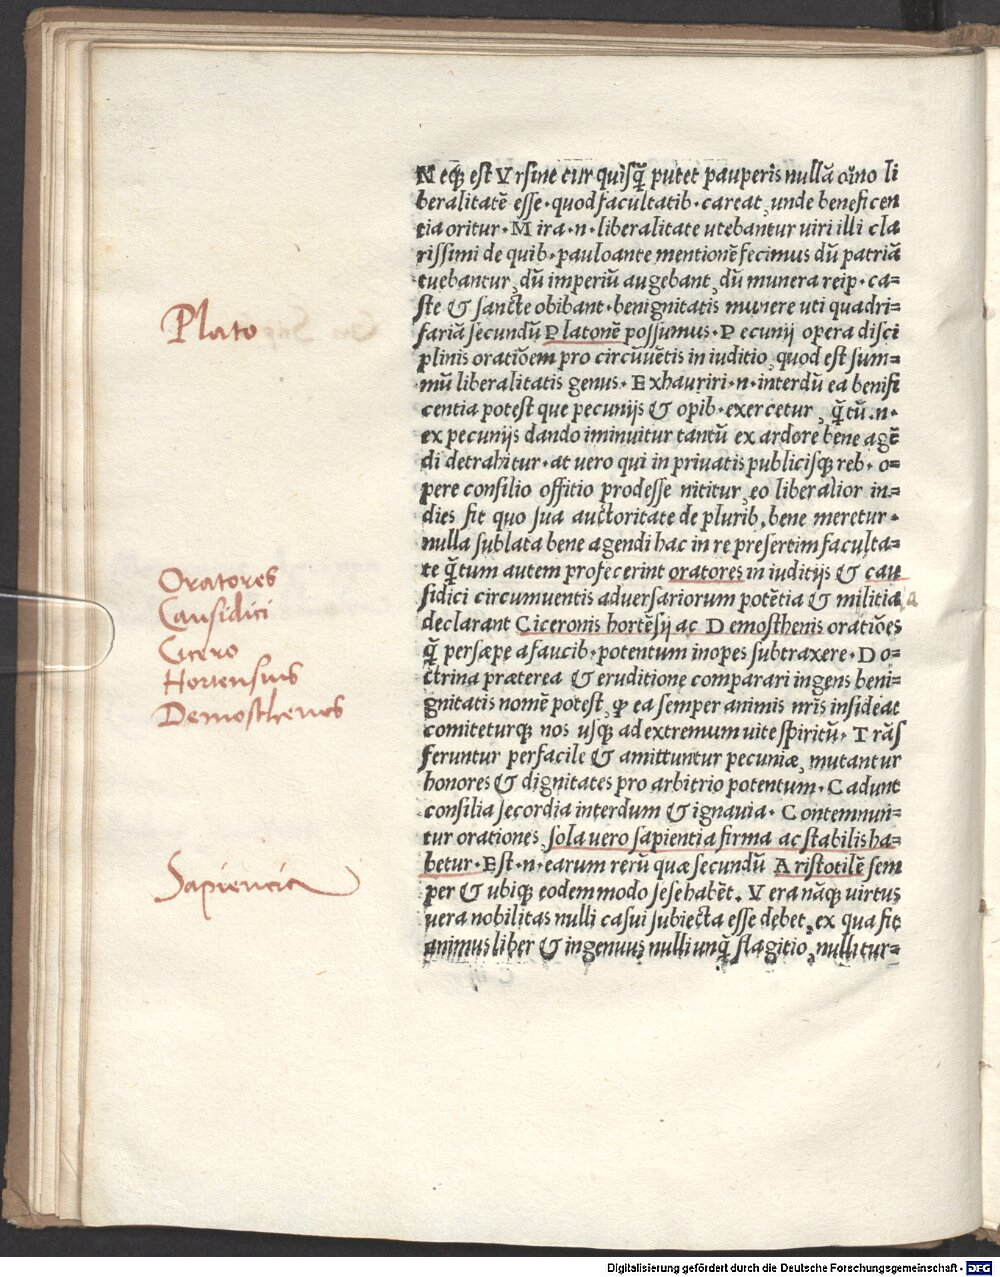 Neq̃ est Vrsine cur quisq̃ putet pauperis nullā oīno li
beralitatē esse·quod facultatib·careat, unde beneficen
tia oritur·Mira·n·liberalitate utebantur uiri illi cla
rissimi de quib·pauloante mentionē fecimus dū patriā
tuebantur, dū imperiū augebant, dū munera reip·ca=
ste & sancte obibant·benignitatis munere uti quadri=
fariā secundū Platonē possumus·Pecunij opera disci
plinis oratiōem pro circūuētis in iuditio, quod est sum=
mū liberalitatis genus·Exhauriri·n·interdū ea benifi
centia potest que pecunijs & opib·exercetur, q̃tū.n·
ex pecunijs dando iminuitur tantū ex ardore bene agē
di detrahitur·at uero qui in priuatis publicisq̃ reb·o=
pere consilio offitio prodesse nititur, eo liberalior in=
dies fit quo sua auctoritate de plurib, bene meretur·
nulla sublata bene agendi hac in re presertim faculta=
te q̃tum autem profecerint oratores in iuditijs & cau
sidici circumuentis aduersariorum potētia & militia a
declarant Ciceronis hortēsij ac Demosthenis oratiōes
q̃ persæpe a faucib·potentum inopes subtraxere·Do=
ctrina præterea & eruditione comparari ingens beni=
gnitatis nomē potest, ꝙ ea semper animis nr̄is insideat
comiteturq̃ nos usq̃ ad extremum uite spiritū·Trās
feruntur perfacile & amittuntur pecuniæ, mutantur
honores & dignitates pro arbitrio potentum·Cadunt
consilia secordia interdum & ignauia·Contemnun=
tur orationes, sola uero sapientia firma ac stabilis ha=
betur·Est·n·earum rerū quæ secundū Aristotilē sem
per & ubiq̃ eodem modo sese habēt. Vera nāq̃ uirtus
uera nobilitas nulli casui subiecta esse debet, ex qua fit
animus liber & ingenuus nulli unq̃ flagitio, nulli tur=
Plato
Oratores
Causidici
Cicero
Hortensius
Demosthenes
Sapiencia
Digitalisierung gefördert durch die Deutsche Forschungsgemeinschaft - DFG